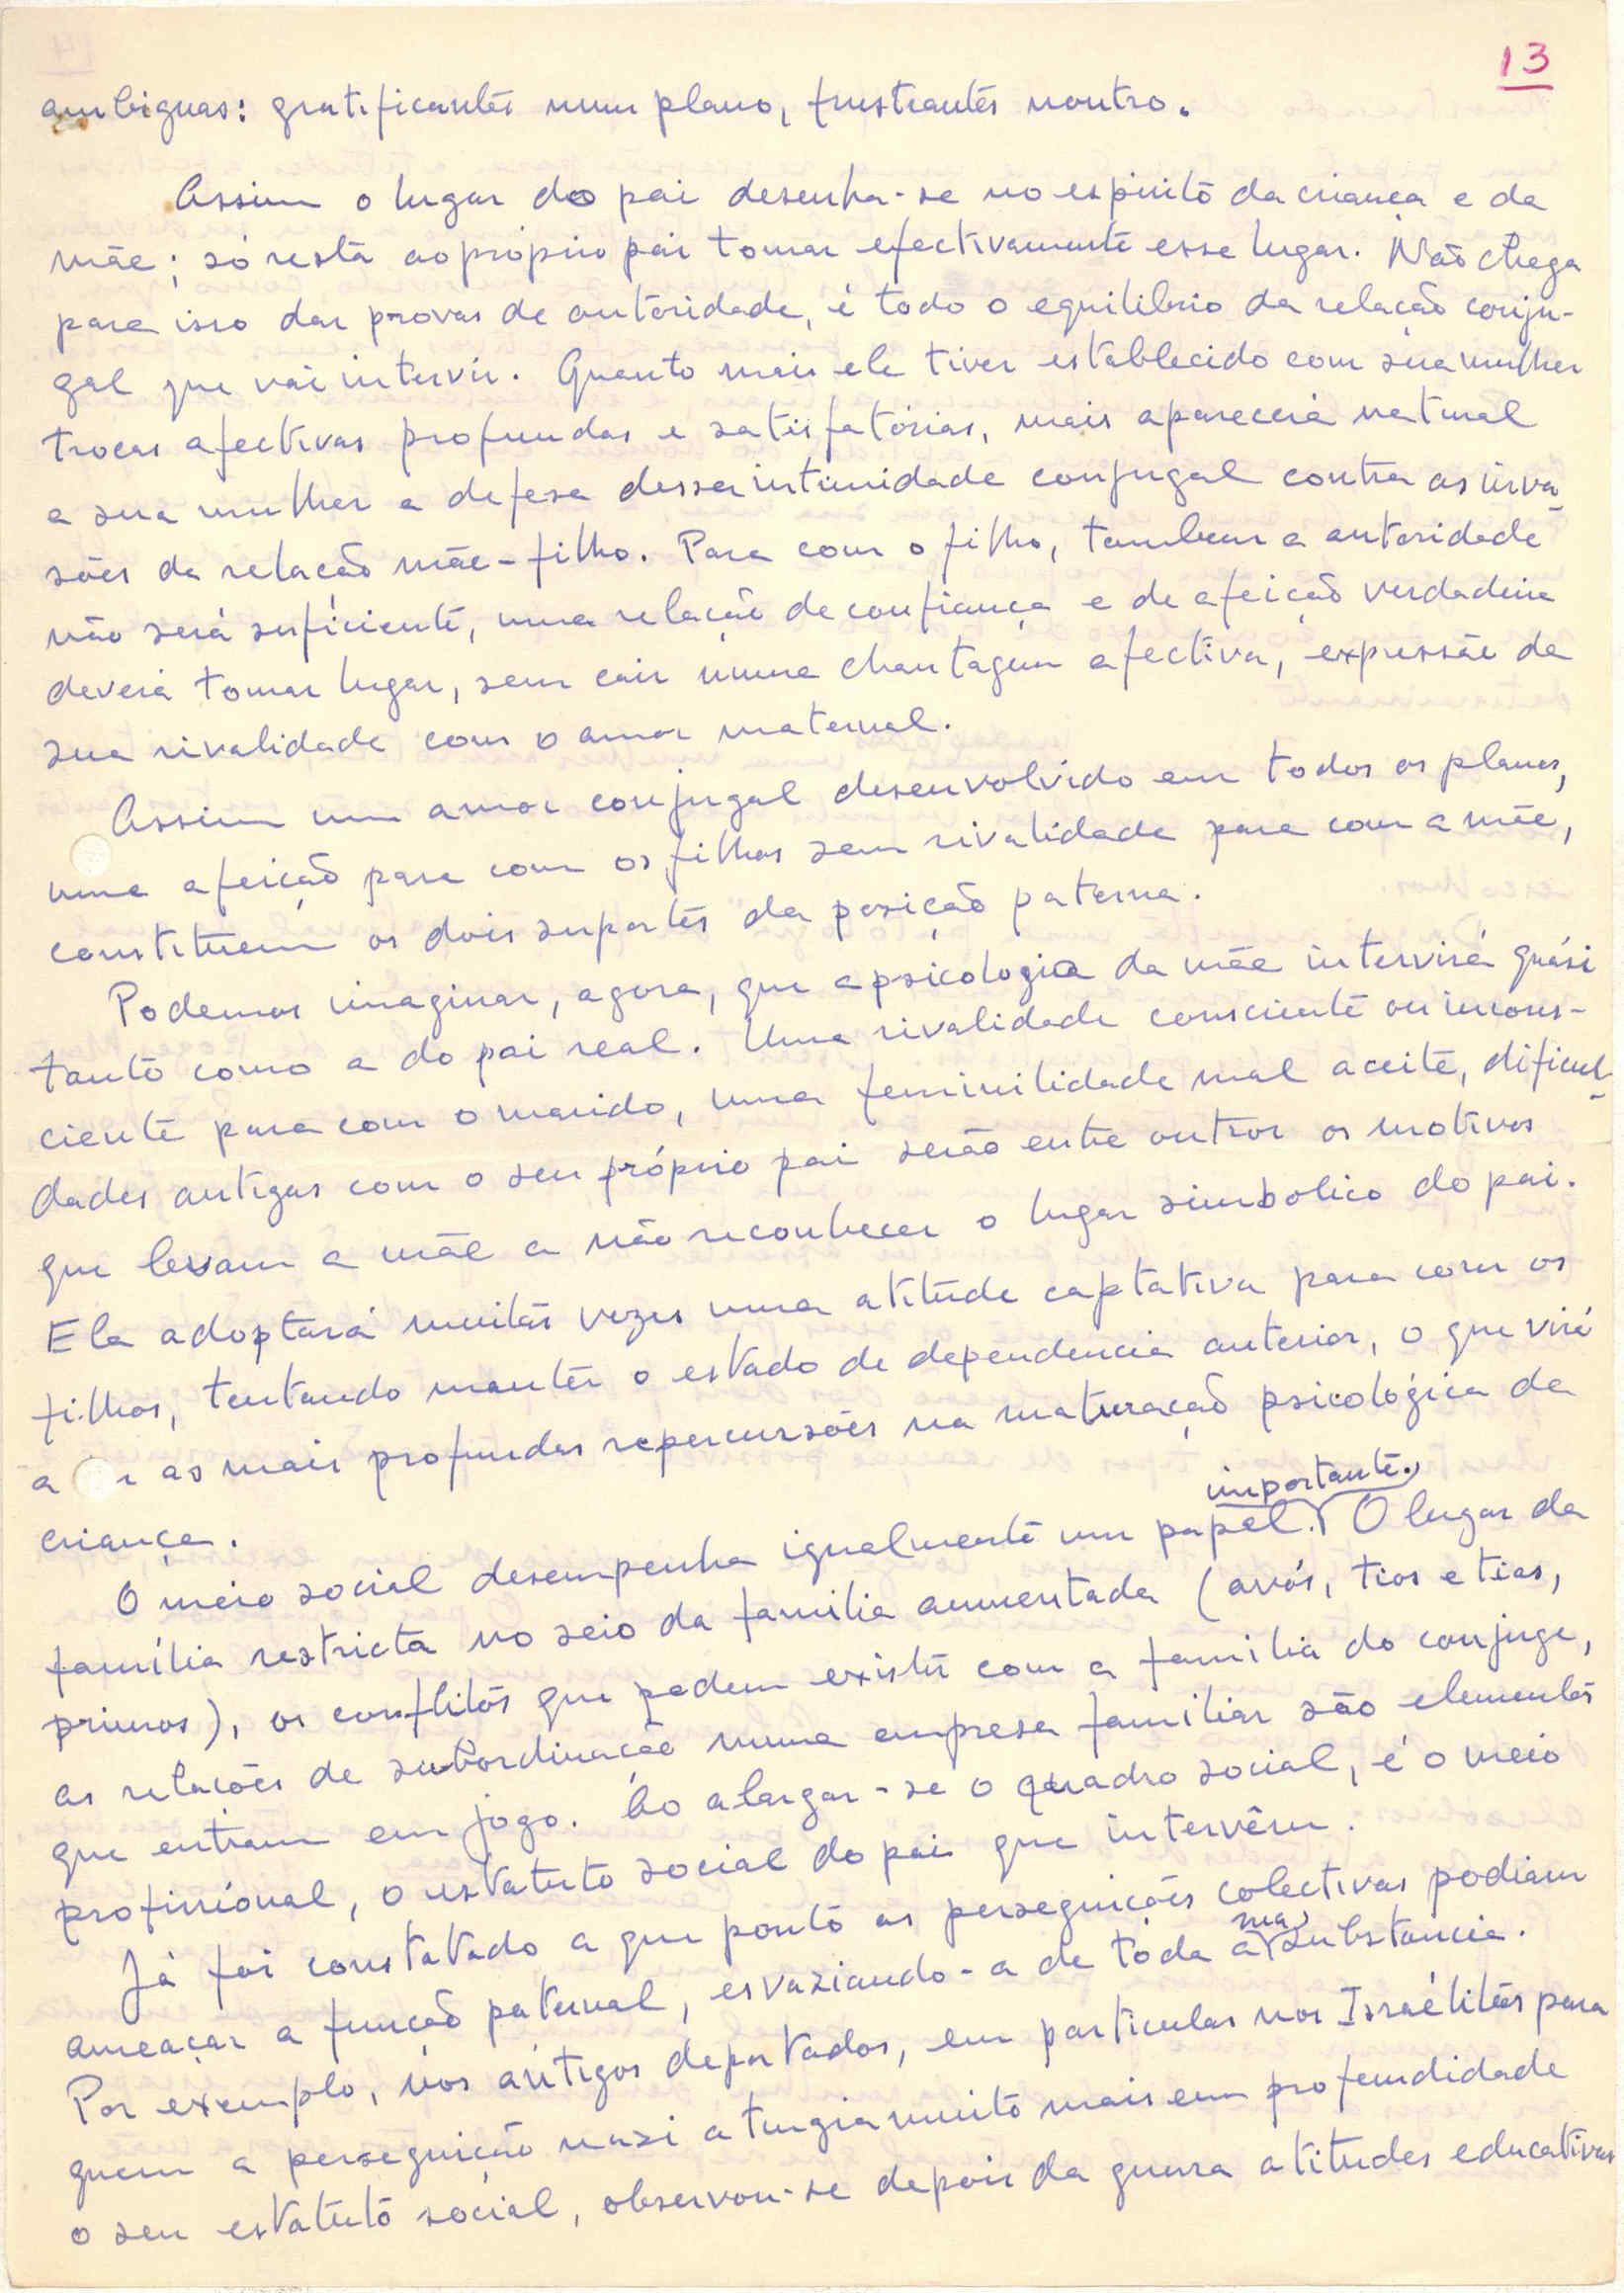 13
ambiguas: gratificantes num plano, frustrantes noutro.
Assim o lugar do pai desenha-se no espirito da criança e da
mãe; só resta ao próprio pai tomar efectivamente esse lugar. Não chega
para isso dar provas de autoridade, é todo o equilibrio da relação conju-
gal que vai intervir. Quanto mais ele tiver establecido com sua mulher
trocas afectivas profundas e satisfatórias, mais aparecerá natural
a sua mulher a defesa dessa intimidade conjugal contra as inva-
sões da relação mãe-filho. Para com o filho, tambem a autoridade
não será suficiente, uma relação de confiança e de afeição verdadeira
deverá tomar lugar, sem cair numa chantagem afectiva, expressão da
sua rivalidade com o amor maternal.
Assim um amor conjugal desenvolvido em todos os planos,
uma afeição para com os filhos sem rivalidade para com a mãe,
constituem os dois suportes da posição paterna.
Podemos imaginar, agora, que a psicologia da mãe intervirá quási
tanto como a do pai real. Uma rivalidade consciente ou incons-
ciente para com o marido, uma feminilidade mal aceite, dificul-
dades antigas com o seu próprio pai serão entre outros os motivos
que levam a mãe a não reconhecer o lugar simbolico do pai.
Ela adoptará muitas vezes uma atitude captativa para com os
filhos, tentando manter o estado de dependencia anterior, o que virá
a r as mais profundas repercursões na maturação psicológica da
criança.
O meio social desempenha igualmente um papel importante. O lugar da
família restricta no seio da familia aumentada (avós, tios e tias,
primos), os conflitos que podem existir com a familia do conjuge,
as relações de subordinação numa empresa familiar são elementos
que entram em jogo. Ao alargar-se o quadro social, é o meio
profissional, o estatuto social do pai que intervêm.
Já foi constatado a que ponto as perseguições colectivas podiam
ameaçar a função paternal, esvaziando-a de tôda a sua substancia.
Por exemplo, nos antigos deportados, em particular nos Israélitas para
quem a perseguição nazi atingia muito mais em profundidade
o seu estatuto social, observou-se depois da guerra atitudes educativas